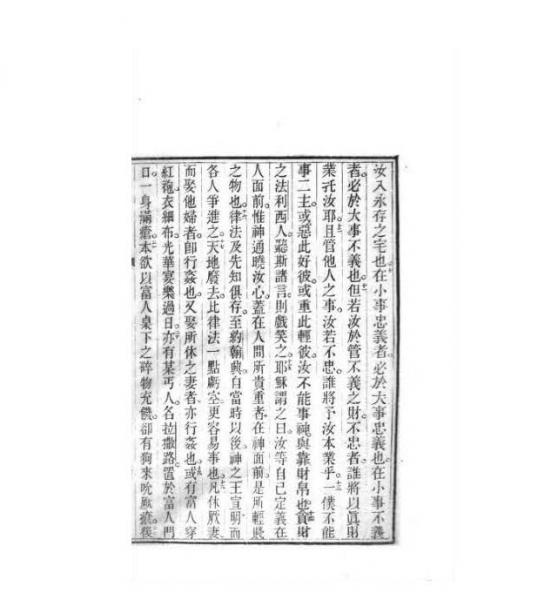 汝入永存之宅也在小事忠義者必於大事忠義也在小事不義
者必於大事不義也但若汝於管不義之財不忠者誰將以眞財
業托汝耶且管他人之事汝若不忠誰將予汝本業乎一僕不能
事二主或惡此好彼或重此輕彼汝不能事神與靠財帛也貪財
之法利西人聽斯諸言則戲笑之耶穌謂之曰汝等自己定義在
人面前惟神通曉汝心蓋在人間所貴重者在神面前是所輕賤
之物也律法及先知俱存至約翰與自當時以後神之王宣明而
各人爭進之天地廢去比律法一點虧空更容易事也凡休厥妻
而娶他婦者卽行姦也又娶所休之妻者亦行姦也或有富人穿
紅袍衣細布光華宴樂過日亦有某丐人名拉撒路置於富人門
口一身滿瘡本欲以富人桌下之碎物充饑卻有狗來吮厥瘡後